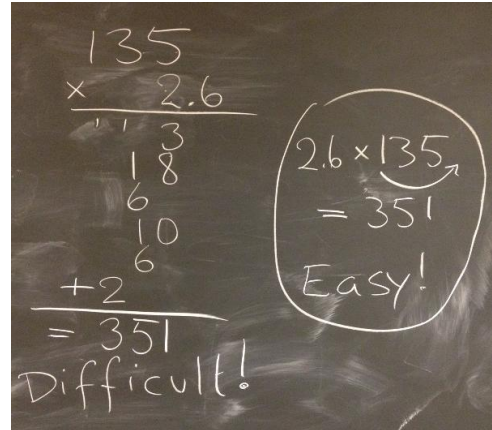 135
× 2.6
1 1 3
1 8
6
1 0
6
+ 2
= 351
Difficult!
2.6 × 135
= 351
Easy!